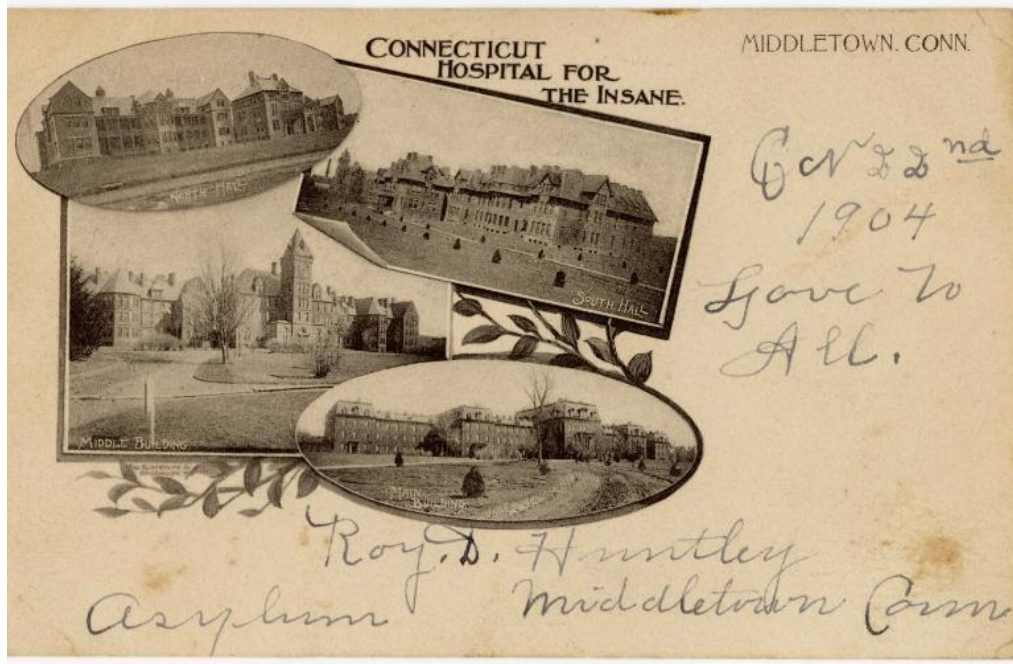 CONNECTICUT
HOSPITAL FOR
THE INSANE.
MIDDLETOWN. CONN.
NORTH HALL
SOUTH HALL
MIDDLE BUILDING.
MAIN
BUILDING.
22nd
1904
Love to
All.
Roy. D. Huntley
Asylum Middletown Conn